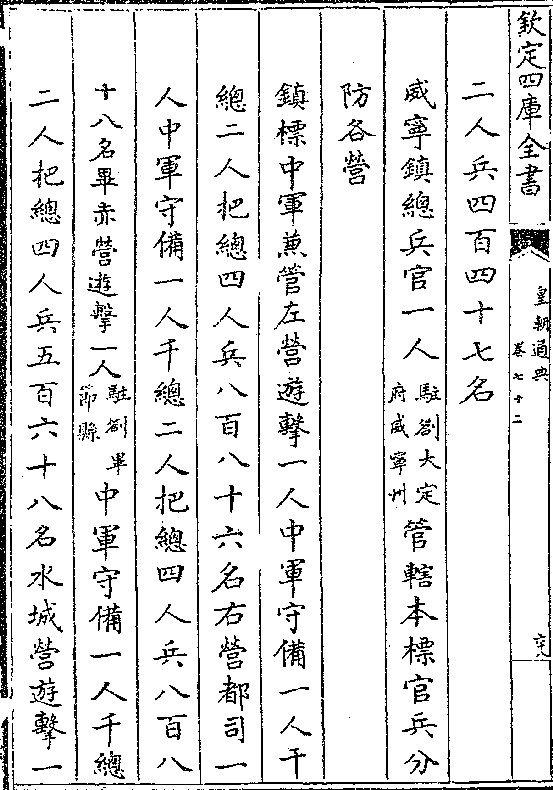 欽定四庫全書
皇朝通典
卷七十二
二人兵四百四十七名
威寧鎮總兵官一人駐劄大定府威寧州管轄本標官兵分
防各營
鎮標中軍兼管左營遊擊一人中軍守備一人千
總二人把總四人兵八百八十六名右營都司一
人中軍守備一人千總二人把總四人兵八百八
十八名畢赤營遊擊一人駐劄畢節縣中軍守備一人千總
二人把總四人兵五百六十八名水城營遊擊一